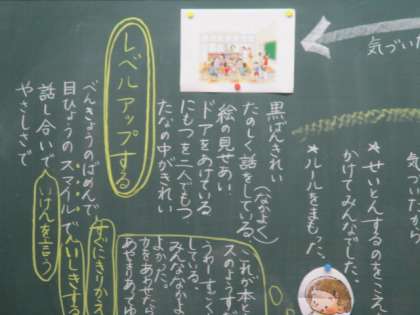 気づいた
気づいたら
*せいとんするのをこえ
かけてみんなでした。
*ルールをまもった。
黒ばんきれい
たのしく話をしている。(なかよく)
絵の見せあい
ドアをあけている
にもつを二人でもつ
たなの中がきれい
これが本と
スのようすだ
うわーすごく
している。
みんななかよ
よかった。
力をあわせたら
あやまりあってゆ
レベルアップする
べんきょうのばめんで すぐにきりかえ
目ひょうのスマイルでいしきする
話し合いで いけんを言う
やさしさで